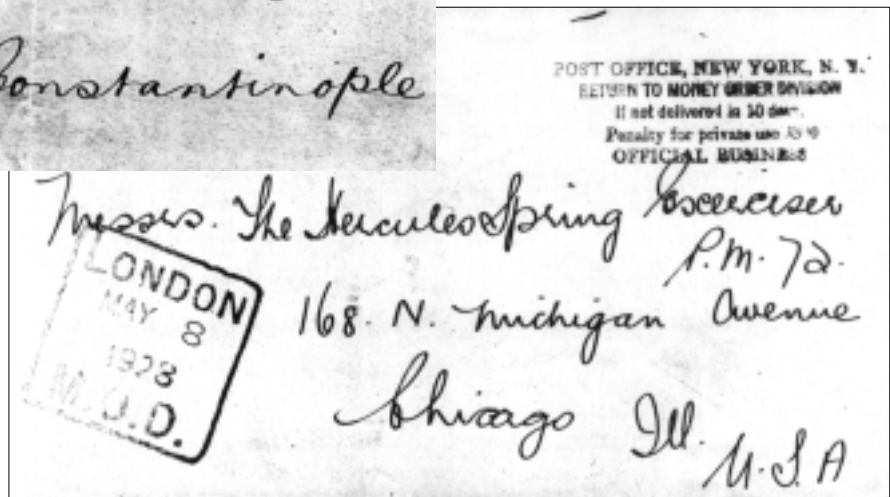 Constantinople
POST OFFICE, NEW YORK, N. Y.
RETURN TO MONEY ORDER DIVISION
If not delivered in 10 days.
Penalty for private use
OFFICIAL BUSINESS
Messrs. The Hercules Spring Excerciser
P.M. 72.
168. N. Michigan Avenue
Chicago Ill.
U.S.A
LONDON
MAY 8
1928
M.O.D.